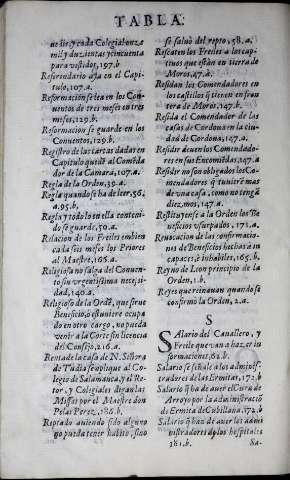 TABLA.
ue sie, y cada Colegial onze
mil y duzientas y cincuenta
para vestidos, 197.b
Refrendario aya en el Capi-
tulo, 107.a.
Reformacion se lea en los Con
uentos de tres meses en tres
meses, 129.b.
Reformacion se guarde en los
Conuentos, 129.b.
Registro de las cartas dadas en
Capitulo quede al Comēda
dor de la Camara, 107.a.
Regla de la Orden, 39.a.
Regla quando se ha de leer, 56.
a. 95.b.
Regla y todo lo en ella conteni-
do se guarde, 50.a.
Relacion de los Freiles embien
cada seis meses los Priores
al Maestre, 166.a.
Religiosa no salga del Conuen-
to sin vrgentissima necesi-
dad, 140.a.
Religioso de la Ordē, que sirue
Beneficio, ò estuuiere ocupa
do en otro cargo, no pueda
venir a la Corte sin licencia
del Consejo, 216.a.
Renta de la casa de N. Señora
de Tudia se aplique al Co-
legio de Salamanca, y el Re-
tor, y Colegiales digan las
Missas por el Maestre don
Pelas Perez, 186.b.
Reptado auiendo sido alguno
no pueda tener habito, sino
se saluò del repto, 58.a.
Rescaten los Freiles a los cap-
tiuos que estàn en tierra de
Moros, 47.a.
Residan los Comendadores en
los castillos q̄ tienen en fron
tera de Moros, 147.b.
Resida el Comendador de las
casas de Cordoua en la ciu-
dad de Cordoua, 147.a.
Residir deuen los Comendado-
res en sus Encomiēdas, 147.a
Residir no son obligados los Co-
mendadores q̄ tuuierē mas
de vna casa, como no tengā
diezmos, 147.a.
Restituyense a la Orden los Be
neficios vsurpados, 171.a.
Reuocacion de las confirmacio-
nes de Beneficios hechas a in
capaces, è inhabiles, 165.b.
Reyno de Leon principio de la
Orden, 1.b.
Reyes que reinauan quando se
confirmò la Orden, 2.a.
S
Salario del Cauallero, y
Freile que van a haz er in-
formaciones, 62.b.
Salario se señale a los adminis-
tradores de las Ermitas, 172.b
Salario q̄ ha de auer el Cura de
Arroyo por la administraciō
de Ermita de Cubillana, 172.b
Salario q̄ han de auer los admi
nistradores de los hospitales
181.b.
Sa-